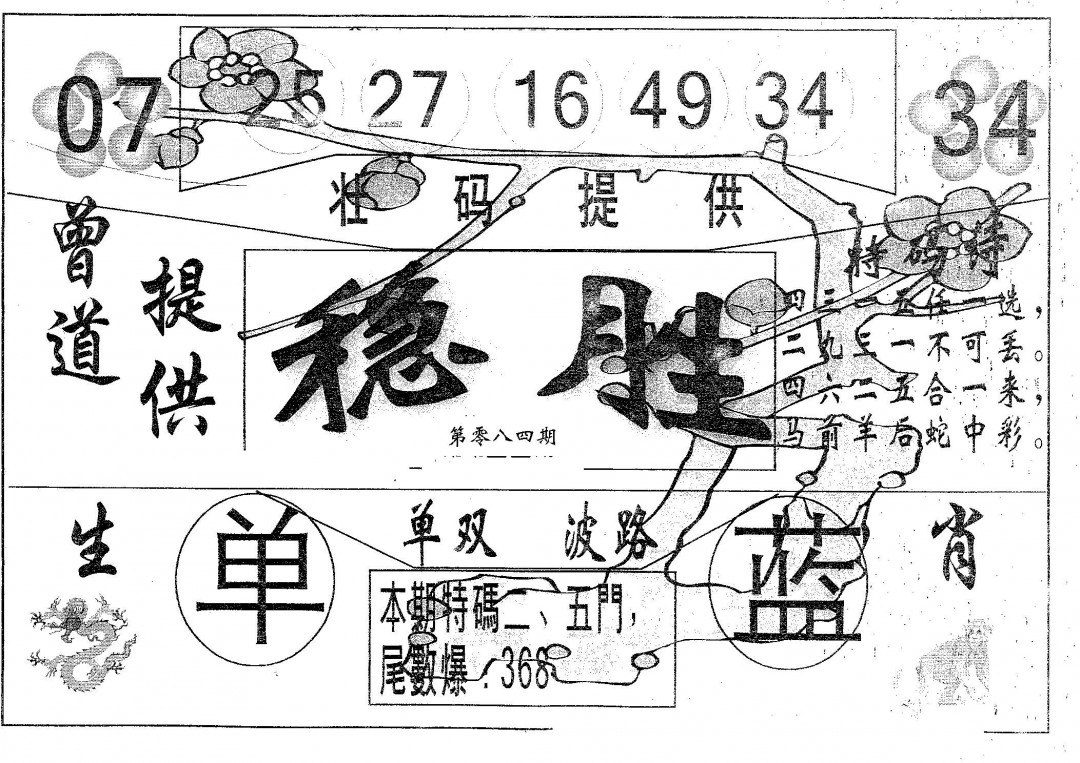 07 25 27 16 49 34 34
壮码提供
曾道
提供
稳胜
第零八四期
特码诗
四三一五任一选，
二九三一不可丢。
四六二五合一来，
马前羊后蛇中彩。
生
单
单双 波路
蓝
肖
本期特碼二、五門，
尾數爆：368